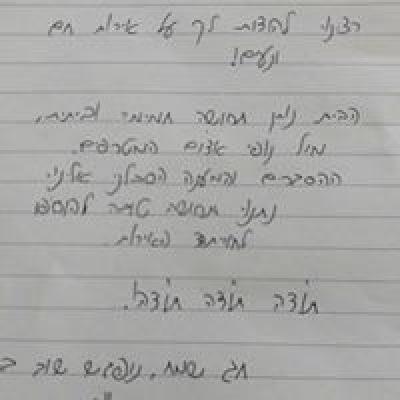 רצינו להודות לך על אירוח חם
ונעים!
הבית נותן תחושה חמימה וביתית,
מול נופי אדום המטריפים.
ההסברים והמענה הסבלני אלינו
נתנו תחושה טובה
לחווית האירוח.
תודה תודה תודה!
חג שמח, נופגש שוב ב